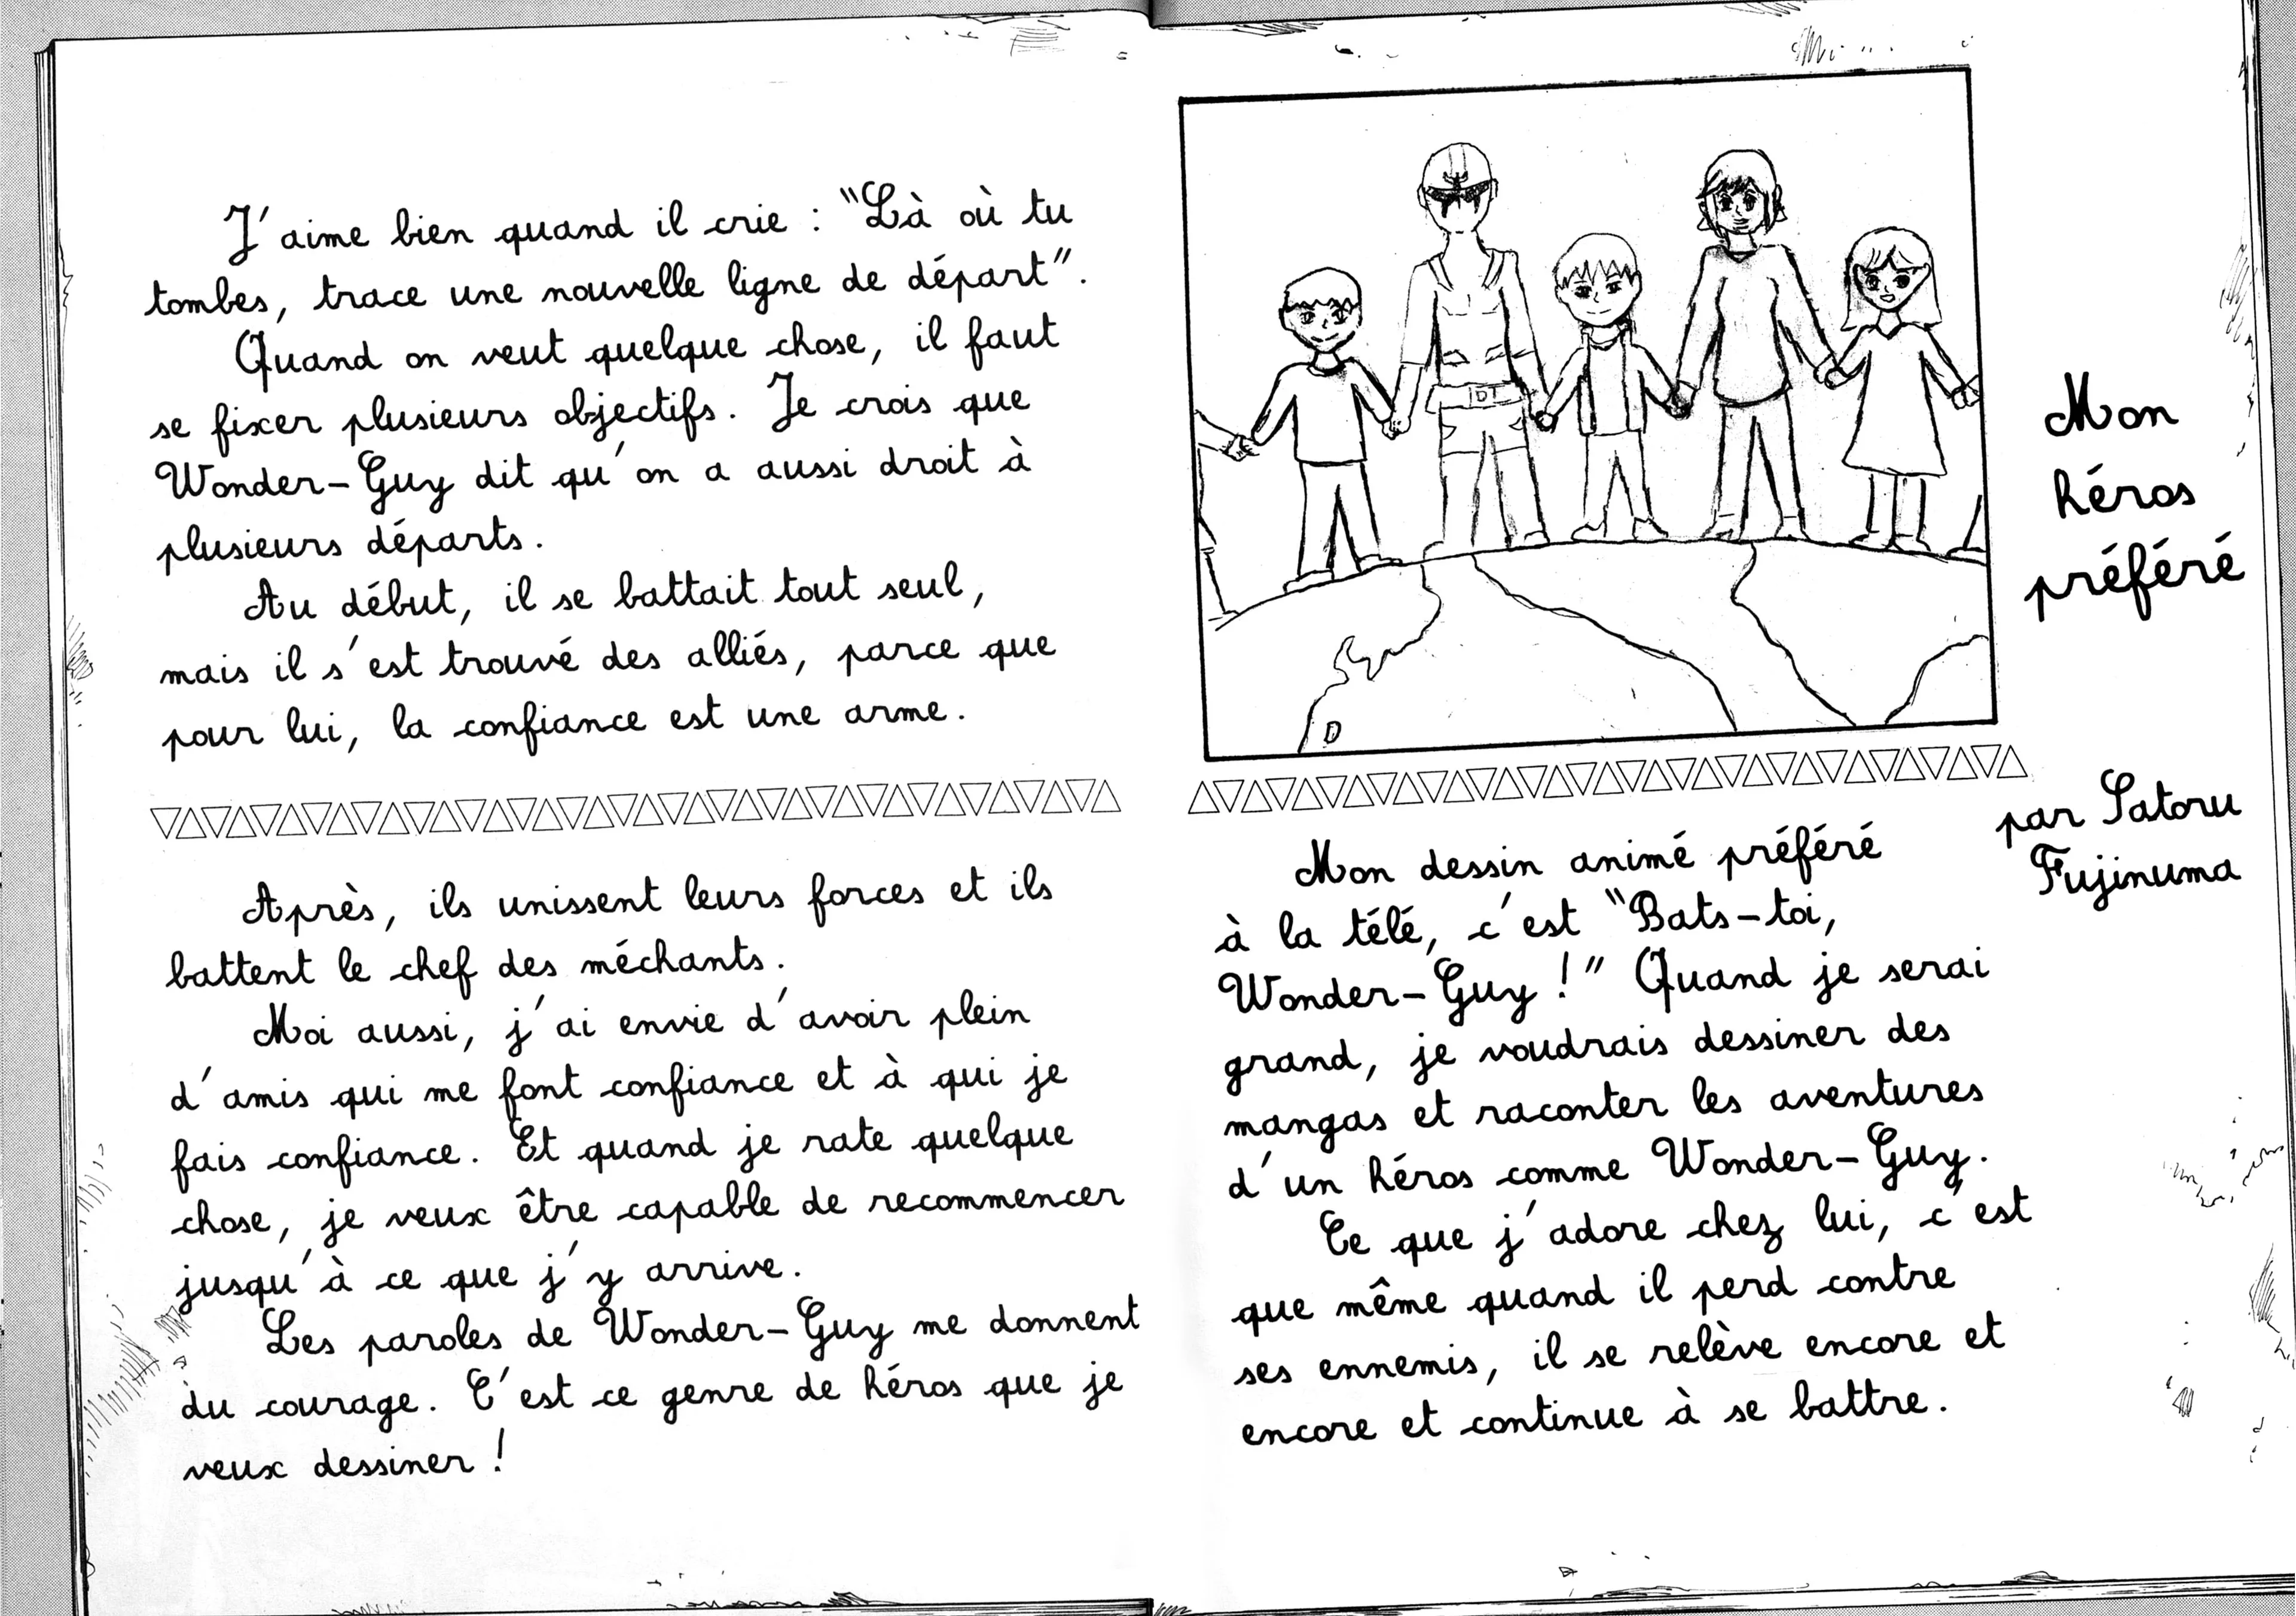 Mon
héros
préféré
par Satoru
Fujinuma
Mon dessin animé préféré
à la télé, c'est "Bats-toi,
Wonder-Guy !" Quand je serai
grand, je voudrais dessiner des
mangas et raconter les aventures
d'un héros comme Wonder-Guy.
Ce que j'adore chez lui, c'est
que même quand il perd contre
ses ennemis, il se relève encore et
encore et continue à se battre.
J'aime bien quand il crie : "Là où tu
tombes, trace une nouvelle ligne de départ".
Quand on veut quelque chose, il faut
se fixer plusieurs objectifs. Je crois que
Wonder-Guy dit qu'on a aussi droit à
plusieurs départs.
Au début, il se battait tout seul,
mais il s'est trouvé des alliés, parce que
pour lui, la confiance est une arme.
Après, ils unissent leurs forces et ils
battent le chef des méchants.
Moi aussi, j'ai envie d'avoir plein
d'amis qui me font confiance et à qui je
fais confiance. Et quand je rate quelque
chose, je veux être capable de recommencer
jusqu'à ce que j'y arrive.
Les paroles de Wonder-Guy me donnent
du courage. C'est ce genre de héros que je
veux dessiner !